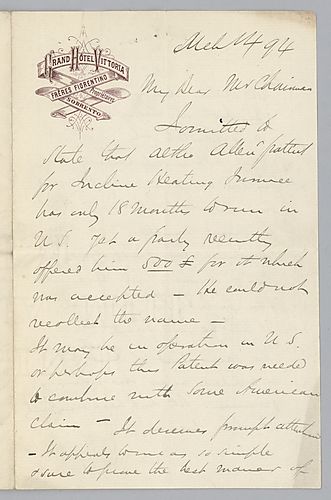 GRAND HÔTEL VITTORIA
FRÈRES FIORENTINO
Propriétaires
SORRENTO
Mch 14 94
My Dear Mr Coleman
I omitted to
State that altho Allen' patent
for Incline Heating Furnace
has only 18 months to run in
U.S. yet a party recently
offered him 500 £ for it which
was accepted — He could not
recollect the name —
It may be in operation in U.S.
or perhaps this Patent was needed
to combine with some American
claim — It deserves prompt attention
- It appeals to me as so simple
& sure to prove the best manner of